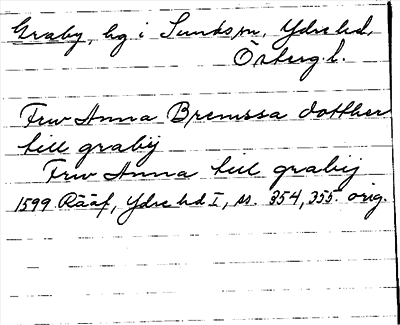 Graby, hg i Sunds sn, Ydre hd,
Österg. l.
Frw Anna Bremssa dotther
till grabij
Frw Anna till grabij
1599 Rääf, Ydre hd I, ss. 354, 355. orig.